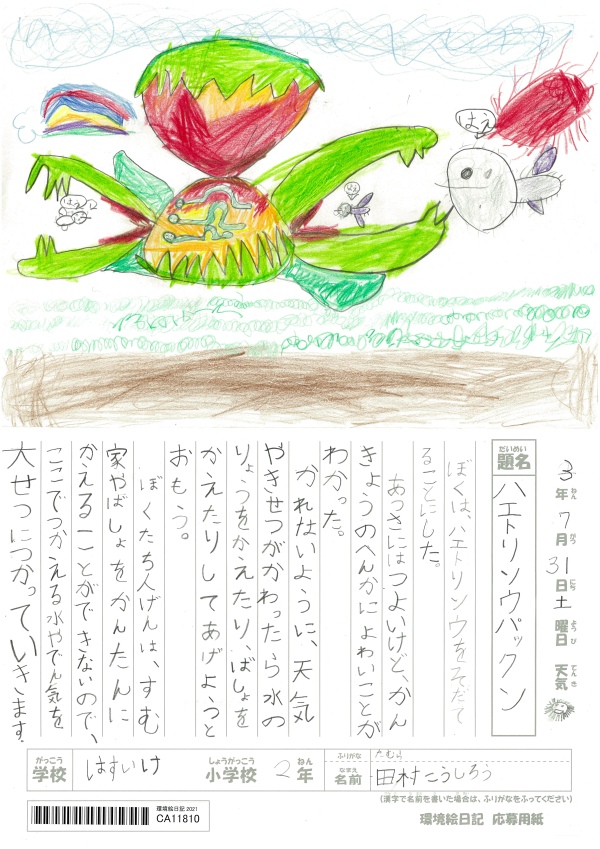 はえ
はぇっ
はえ
3年7月31日土曜日 天気
ねん がつ にち ようび てんき
だいめい
題名 ハエトリソウパックン
ぼくは、ハエトリソウをそだて
ることにした。
あつさにはつよいけど、かん
きょうのへんかによわいことが
わかった。
かれないように、天気
やきせつがかわったら水の
りょうをかえたり、ばしょを
かえたりしてあげようと
おもう。
ぼくたち人げんは、すむ
家やばしょをかんたんに
かえることができないので、
ここでつかえる水やでん気を
大せつにつかっていきます。
がっこう しょうがっこう ねん ふりがな たむら
学校 はすいけ 小学校 2年 なまえ 名前 田村こうしろう
(漢字で名前を書いた場合は、ふりがなをふってください)
環境絵日記2021
CA11810
環境絵日記 応募用紙